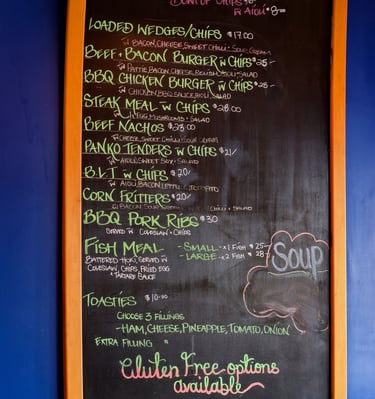 BOWL OF CHIPS
w AIOLI 8.00
LOADED WEDGES/CHIPS $17.00
w BACON, CHEESE, SWEET CHILLI + SOUR CREAM
BEEF + BACON BURGER w CHIPS $25-
w PATTIE, BACON, CHEESE, RELISH, AIOLI + SALAD
BBQ CHICKEN BURGER w CHIPS $25-
w CHICKEN, BBQ SAUCE, AIOLI, SALAD
STEAK MEAL w CHIPS $28.00
w EGG, MUSHROOMS + SALAD
BEEF NACHOS $23.00
w CHEESE, SWEET CHILLI + SOUR CREAM
PANKO TENDERS w CHIPS $21/
w AIOLI, SWEET SOY + SALAD
B.L.T w CHIPS $20/
w AIOLI, BACON, LETTUCE, TOMATO
CORN FRITTERS $20/
w BACON, SOUR CREAM, CHILLI + SALAD
BBQ PORK RIBS $30
SERVED w COLESLAW + CHIPS
FISH MEAL - SMALL - x1 FISH $25-
- LARGE - x2 FISH $28
BATTERED HOKI, SERVED w
COLESLAW, CHIPS, FRIED EGG
+ TARTARE SAUCE
SOUP
TOASTIES $10.00
CHOOSE 3 FILLINGS
- HAM, CHEESE, PINEAPPLE, TOMATO, ONION
EXTRA FILLING
Gluten Free options
available